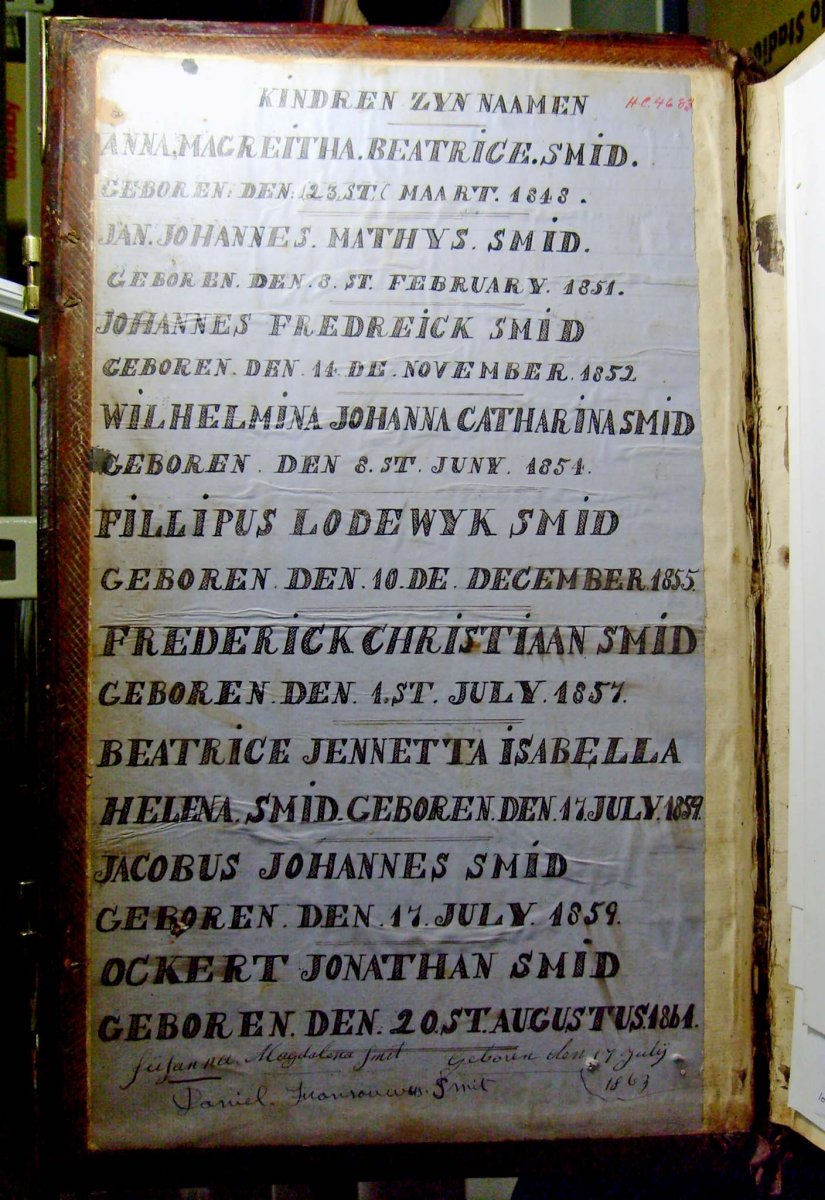 KINDREN ZYN NAAMEN
H.C. 4683
ANNA. MAGREITHA. BEATRICE. SMID.
GEBOREN: DEN: 23.ST. MAART. 1848.
JAN. JOHANNES. MATHYS. SMID.
GEBOREN. DEN. 8. ST. FEBRUARY. 1851.
JOHANNES FREDREICK SMID
GEBOREN. DEN. 14. DE. NOVEMBER. 1852
WILHELMINA JOHANNA CATHARINA SMID
GEBOREN. DEN 8. ST. JUNY. 1854.
FILLIPUS LODEWYK SMID
GEBOREN. DEN. 10. DE. DECEMBER 1855.
FREDERICK CHRISTIAAN SMID
GEBOREN. DEN. 1.ST. JULY. 1857.
BEATRICE JENNETTA ISABELLA
HELENA. SMID. GEBOREN. DEN. 17. JULY. 1859.
JACOBUS JOHANNES SMID
GEBOREN. DEN. 17. JULY. 1859.
OCKERT JONATHAN SMID
GEBOREN. DEN. 20.ST. AUGUSTUS. 1861.
Susanna Magdalena Smit Geboren den 17 July
1863
Daniel. Smit